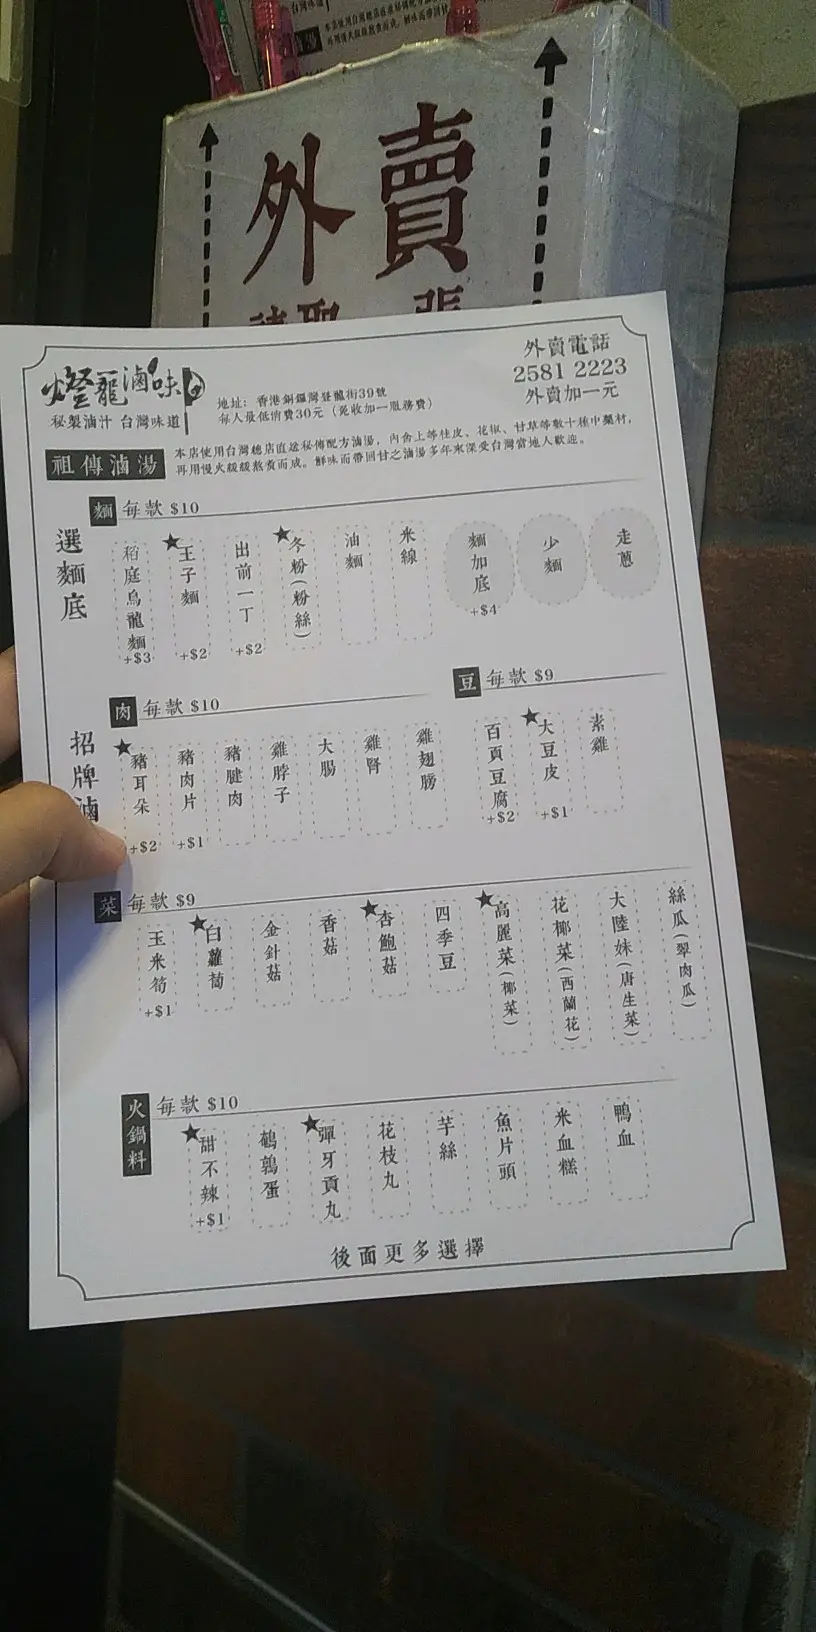 外賣
燈籠滷味
秘製滷汁 台灣味道
地址: 香港銅鑼灣登龍街39號
每人最低消費30元 (免收加一服務費)
外賣電話
2581 2223
外賣加一元
祖傳滷湯
本店使用台灣總店直送秘傳配方滷湯, 內含上等桂皮、花椒、甘草等數十種中藥材,
再用慢火緩緩熬煮而成。鮮味而帶回甘之滷湯多年來深受台灣當地人歡迎。
選麵底
麵 每款 $10
稻庭烏龍麵 +$3
★王子麵 +$2
出前一丁 +$2
★冬粉(粉絲)
油麵
米線
麵加底 +$4
少麵
走蔥
招牌滷
肉 每款 $10
★豬耳朵 +$2
豬肉片 +$1
豬腱肉
雞脖子
大腸
雞腎
雞翅膀
豆 每款 $9
百頁豆腐 +$2
★大豆皮 +$1
素雞
菜 每款 $9
玉米筍 +$1
★白蘿蔔
金針菇
香菇
★杏鮑菇
四季豆
★高麗菜(椰菜)
花椰菜(西蘭花)
大陸妹(唐生菜)
絲瓜(翠肉瓜)
火鍋料 每款 $10
★甜不辣 +$1
鵪鶉蛋
★彈牙貢丸
花枝丸
芋絲
魚片頭
米血糕
鴨血
後面更多選擇